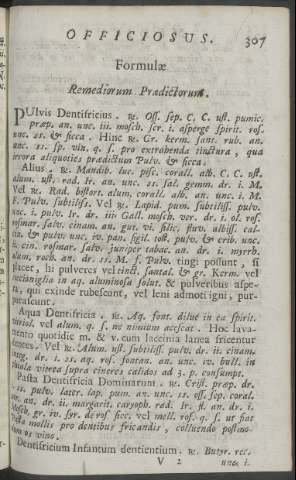 OFFICIOSUS. 307
Formulæ
Remediorum Prædictorum.
PUlvis Dentifricius. ℞. Oss. sep. C. C. ust. pumic.
præp. an. unc. iii. mosch. scr. i. asperge spirit. ros.
unc. ss. & sicca. Hinc ℞. Gr. kerm. sant. rub. an.
unc. ss. sp. vin. q. s. pro extrahenda tinctura, qua
irrora aliquoties prædictum Pulv. & sicca.
Alius. ℞. Mandib. luc. pisc. corall. alb. C. C. ust.
alum. ust. rad. Ir. an. unc. ss. sal. gemm. dr. i. M.
Vel ℞. Rad. bistort. alum. corall. alb. an. unc. i. M.
f. Pulv. subtiliss. Vel ℞. Lapid. pum. subtiliss. pulv.
unc. i. pulv. Ir. dr. iii Gall. mosch. ver. dr. i. ol. ros.
rosmar. salv. cinam. an. gut. vi. silic. fluv. albiss. cal-
pulv. unc. iv. pan. sigil. tost. pulv. & crib. unc.
i. cin. rosmar. salv. junrper tabac. an. dr. i. myrrh.
alum. roch. an. dr. ss. M. f. Pulv. tingi possunt, si
placet, hi pulveres vel tinct. santal. & gr. Kerm. vel
cochiniglia in aq. aluminosa solut. & pulveribus asper-
sa, qui exinde rubescunt, vel leni admoti igni, pur-
purascunt.
Aqua Dentifricia. ℞. Aq. font. dilue in ea spirit.
vitriol. vel alum. q. s. ne nimium acescat. Hoc lava-
mento quotidie m. & v. cum lacinia lanea fricentur
dentes. Vel ℞. Alum. ust. subtiliss. pulv. dr. ii. cinam.
dr. i. ss. aq. ros. fontan. an. unc. iv. bull. in
phiala vitrea supra cineres calidos ad 3. p. consumpt.
Pasta Dentifricia Dominarum. ℞. Crist. præp. dr.
ss. pulv. later. lap. pum. an. unc. ss. oss. sep. coral.
an. dr. ii. margarit. caryoph. rad. Ir. fl. an. dr. i.
mosch. gr. iv. syr. de ros sicc. vel mell. ros. q. s. ut fiat
pasta mollis pro dentibus fricandis, colluendo postmo-
dum os vino.
Dentifricium Infantum dentientium. ℞. Butyr. rec.
V 2 unc. i.